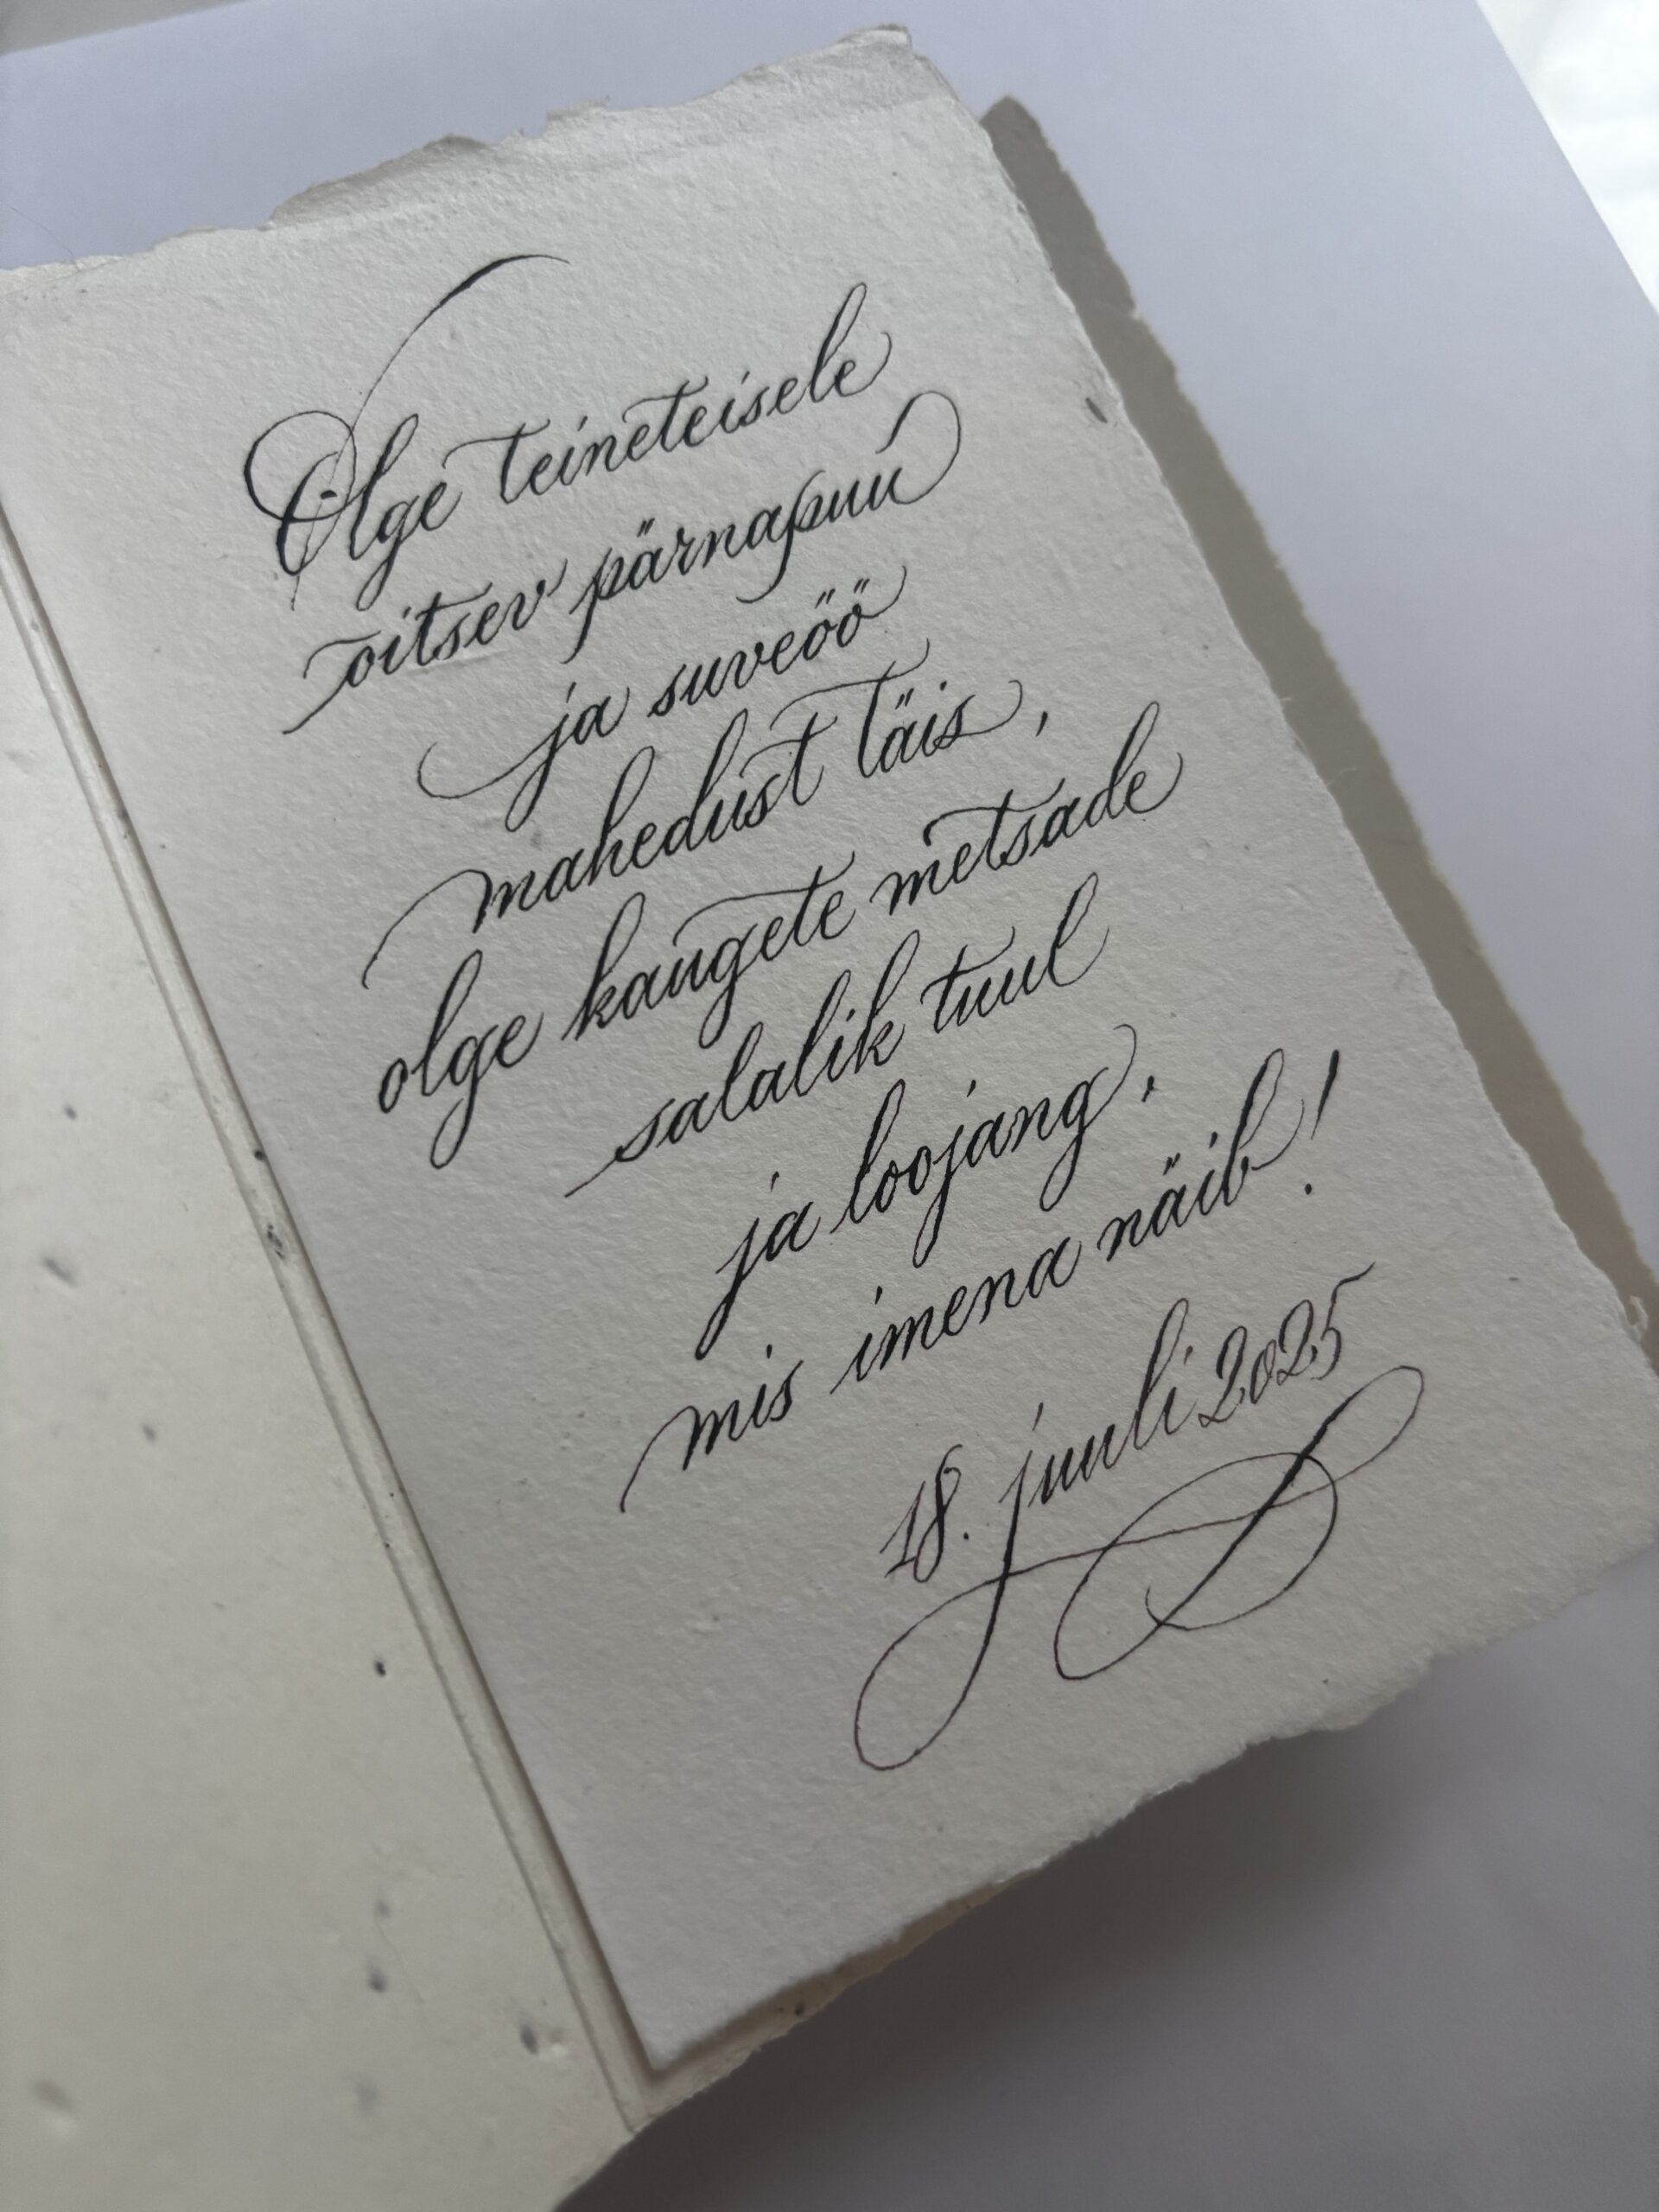 Olge teineteisele
õitsev pärnapuu
ja suveöö
mahedust täis,
olge kaugete metsade
salalik tuul
ja loojang,
mis imena näib!
18. juuli 2025